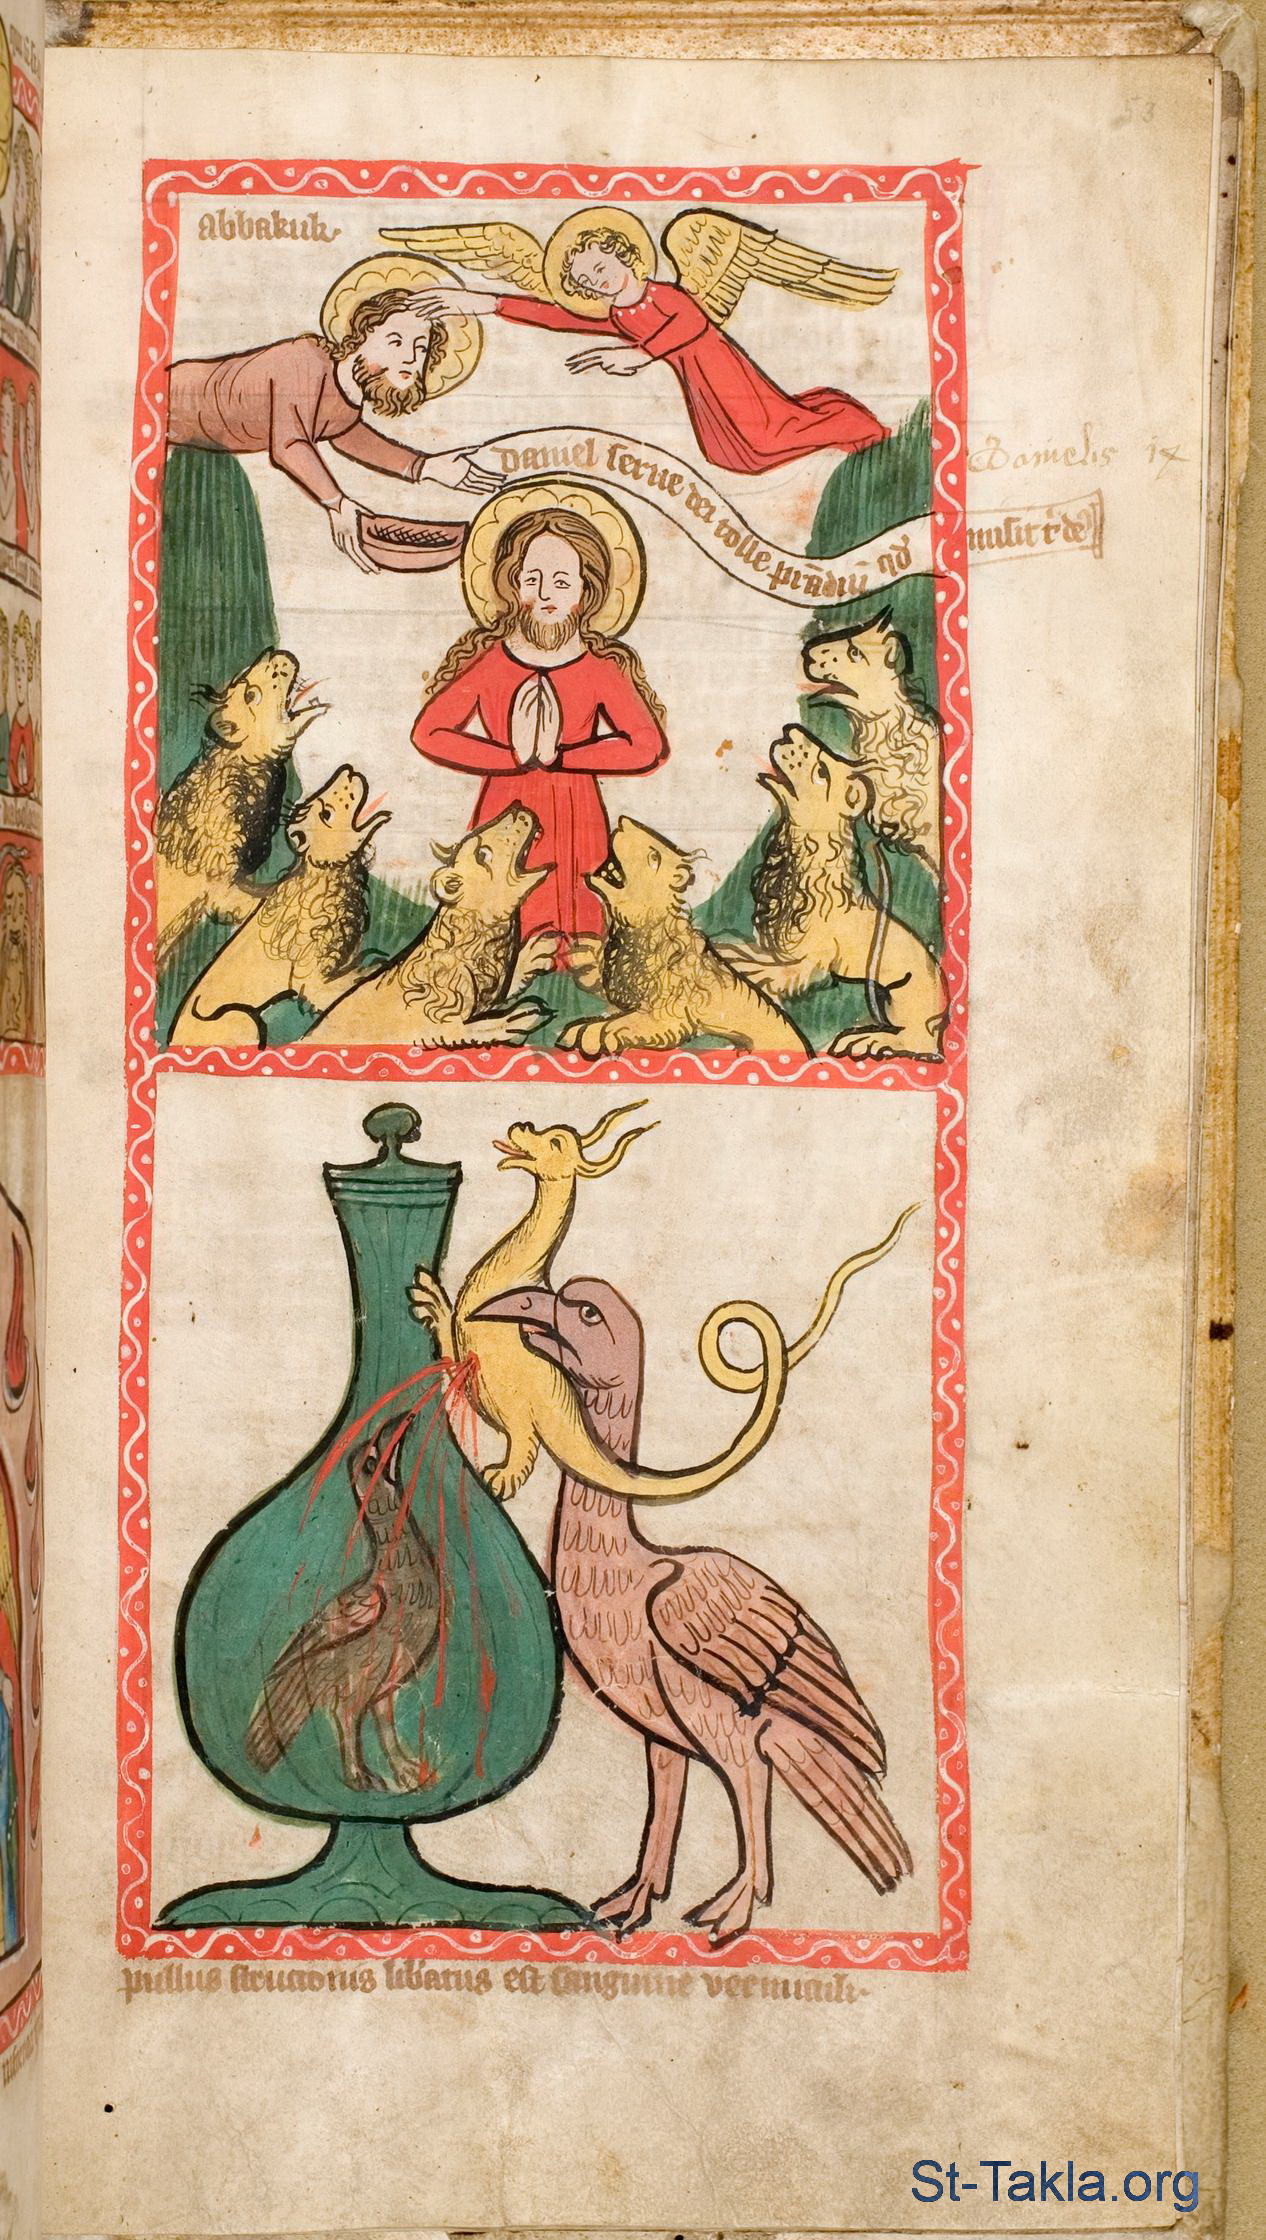 53
abbakuk
daniel serue dei tolle prādiū qd
misit t' de'
Danielis ix
pullus structionis lib'atus est sanguine vermiculi
St-Takla.org